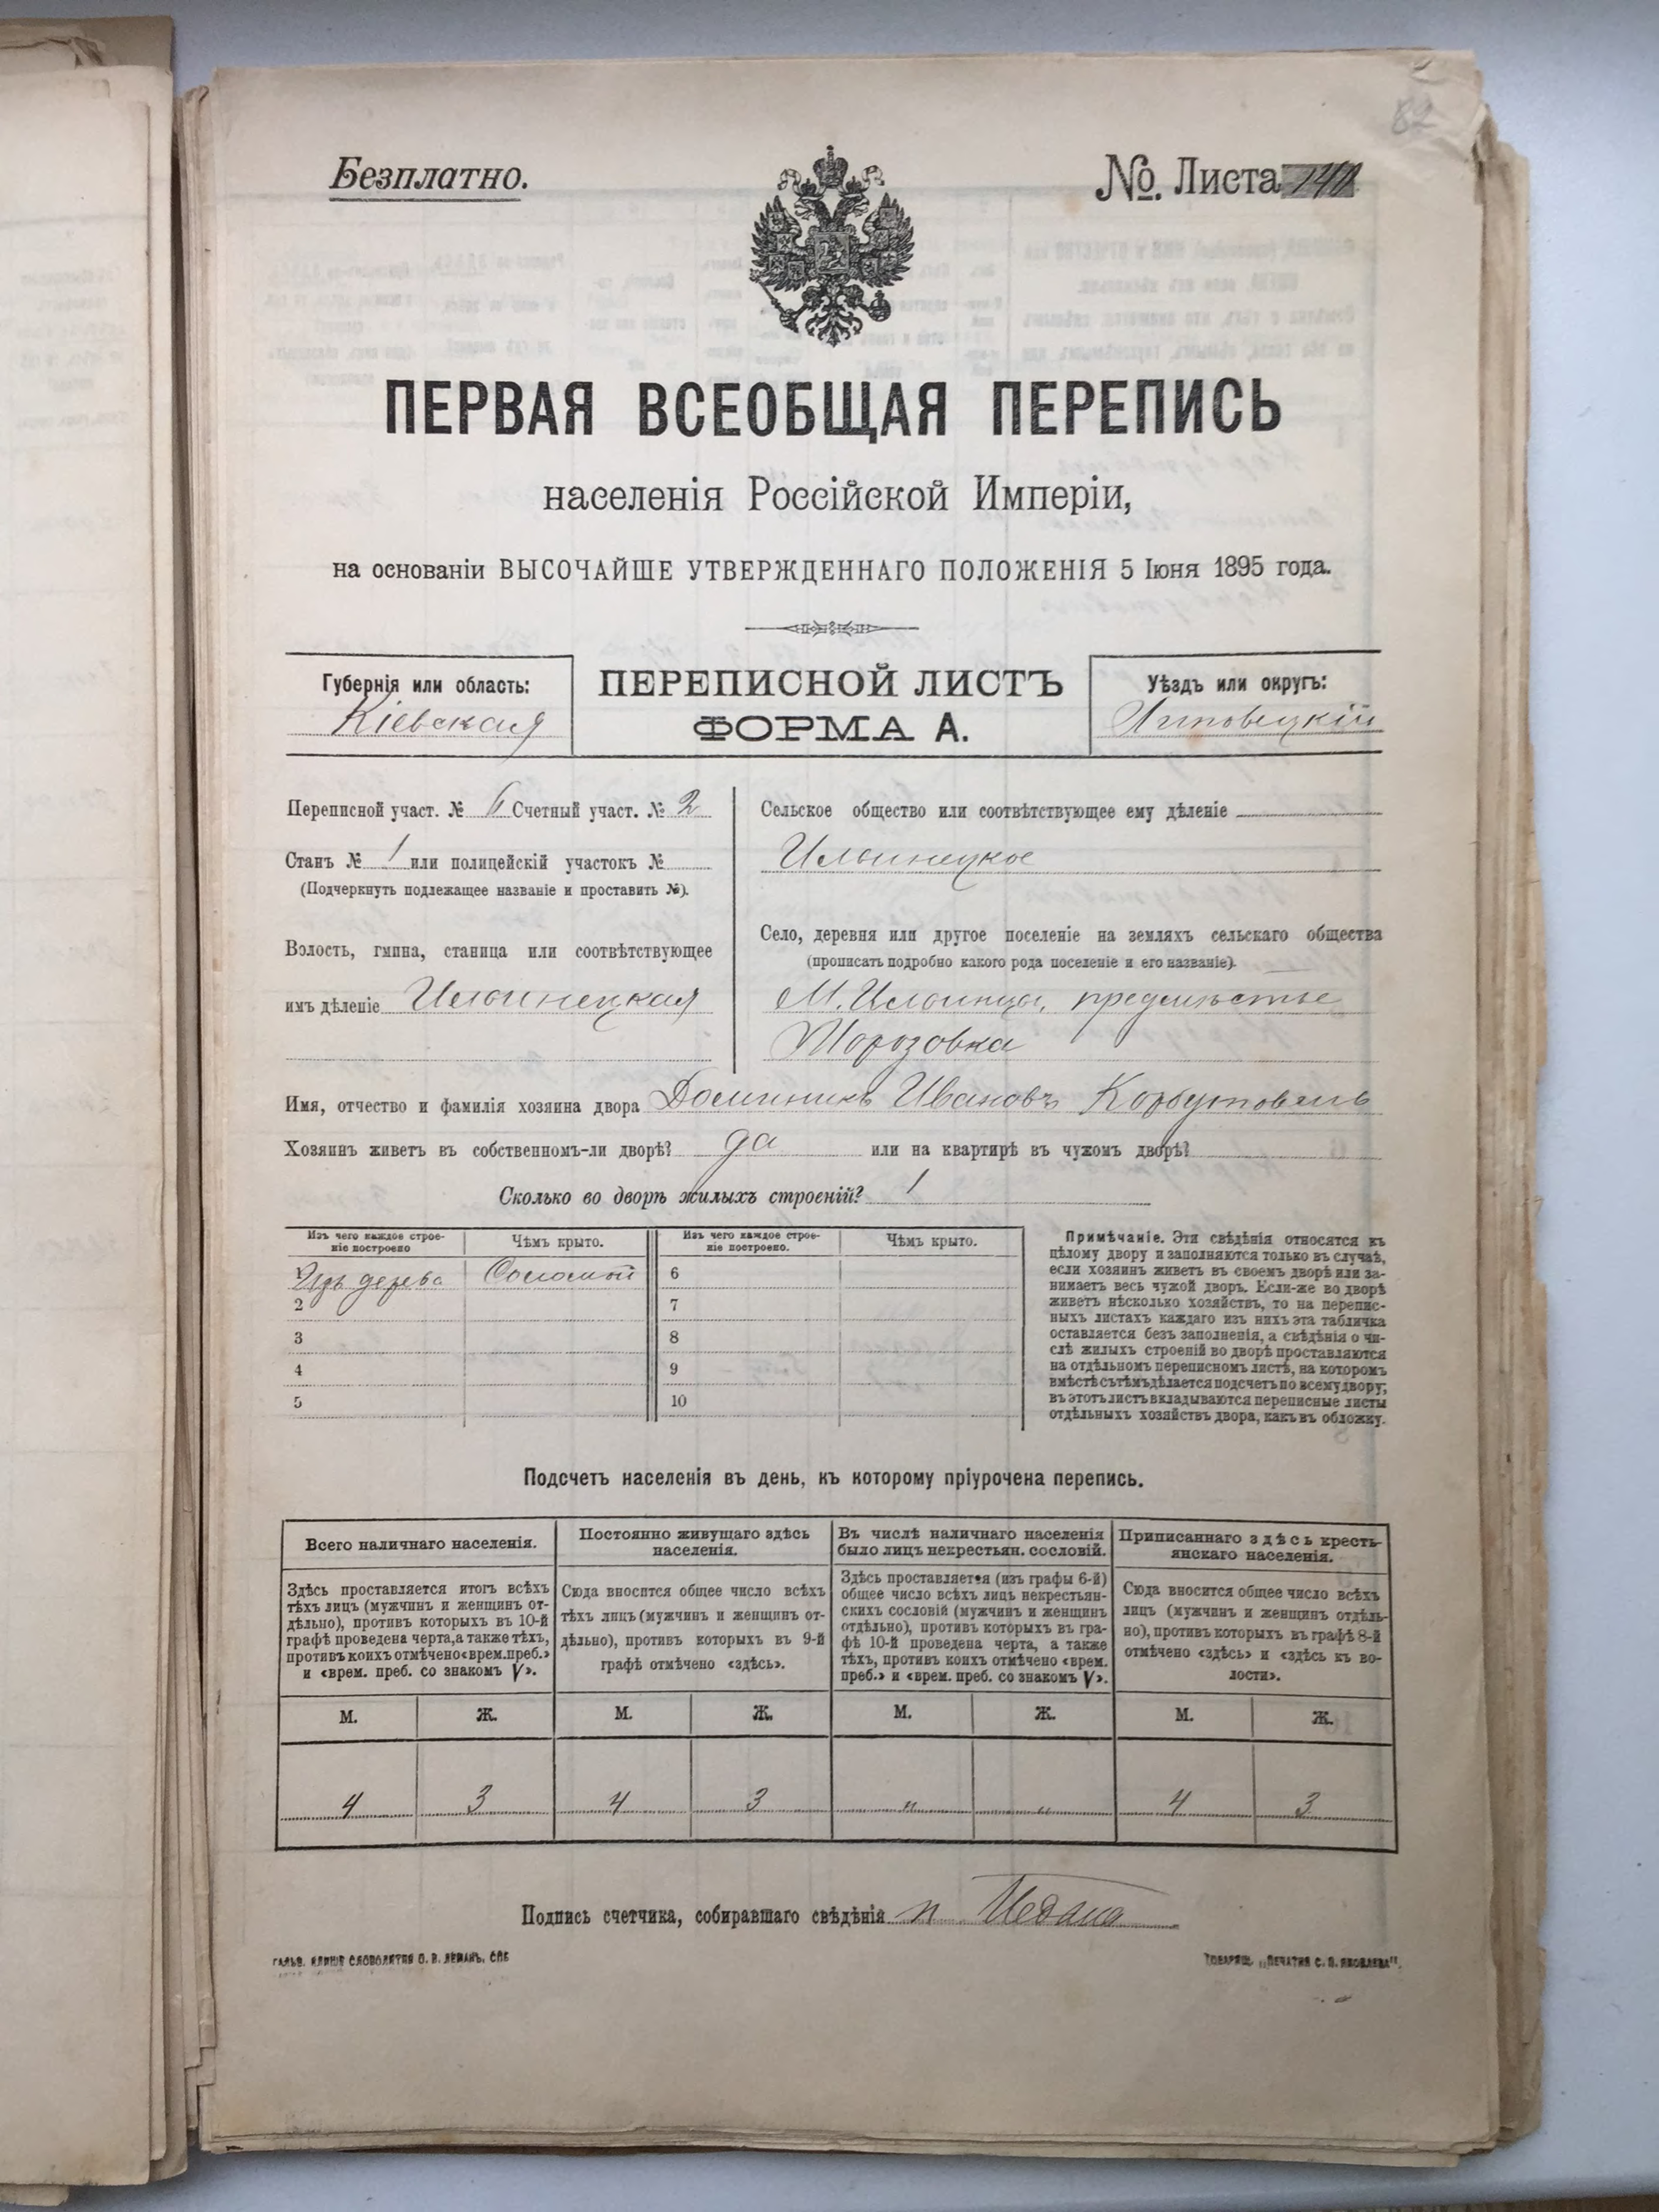 82
Безплатно.
№. Листа
ПЕРВАЯ ВСЕОБЩАЯ ПЕРЕПИСЬ
населенія Россійской Имперіи,
на основаніи ВЫСОЧАЙШЕ УТВЕРЖДЕННАГО ПОЛОЖЕНІЯ 5 Іюня 1895 года.
Губернія или область:
Кіевская
ПЕРЕПИСНОЙ ЛИСТЪ
ФОРМА А.
Уѣздъ или округъ:
Липовецкій
Переписной участ. № 6 Счетный участ. № 2
Станъ № 1 или полицейскій участокъ №
(Подчеркнуть подлежащее названіе и проставить №).
Волость, гмина, станица или соотвѣтствующее
имъ дѣленіе Ильинецкая
Сельское общество или соотвѣтствующее ему дѣленіе
Ильинецкое
Село, деревня или другое поселеніе на земляхъ сельскаго общества
(прописать подробно какого рода поселеніе и его названіе).
М. Ильинцы, предмѣстье
Морозовка
Имя, отчество и фамилія хозяина двора Доминикъ Ивановъ
Хозяинъ живетъ въ собственномъ-ли дворѣ? да или на квартирѣ въ чужомъ дворѣ?
Сколько во дворѣ жилыхъ строеній? 1
Изъ чего каждое строе-
ніе построено
Чѣмъ крыто.
Изъ чего каждое строе-
ніе построено.
Чѣмъ крыто.
1 Изъ дерева Соломой 6
2 7
3 8
4 9
5 10
Примѣчаніе. Эти свѣдѣнія относятся къ
цѣлому двору и заполняются только въ случаѣ,
если хозяинъ живетъ въ своемъ дворѣ или за-
нимаетъ весь чужой дворъ. Если-же во дворѣ
живетъ нѣсколько хозяйствъ, то на перепис-
ныхъ листахъ каждаго изъ нихъ эта табличка
оставляется безъ заполненія, а свѣдѣнія о чи-
слѣ жилыхъ строеній во дворѣ проставляются
на отдѣльномъ переписномъ листѣ, на которомъ
вмѣстѣ съ тѣмъ дѣлается подсчетъ по всему двору;
въ этотъ листъ вкладываются переписные листы
отдѣльныхъ хозяйствъ двора, какъ въ обложку.
Подсчетъ населенія въ день, къ которому пріурочена перепись.
Всего наличнаго населенія.
Здѣсь проставляется итогъ всѣхъ
тѣхъ лицъ (мужчинъ и женщинъ от-
дѣльно), противъ которыхъ въ 10-й
графѣ проведена черта, а также тѣхъ,
противъ коихъ отмѣчено «врем. преб.»
и «врем. преб. со знакомъ V».
Постоянно живущаго здѣсь
населенія.
Сюда вносится общее число всѣхъ
тѣхъ лицъ (мужчинъ и женщинъ от-
дѣльно), противъ которыхъ въ 9-й
графѣ отмѣчено «здѣсь».
Въ числѣ наличнаго населенія
было лицъ некрестьян. сословій.
Здѣсь проставляется (изъ графы 6-й)
общее число всѣхъ лицъ некрестьян-
скихъ сословій (мужчинъ и женщинъ
отдѣльно), противъ которыхъ въ гра-
фѣ 10-й проведена черта, а также
тѣхъ, противъ коихъ отмѣчено «врем.
преб.» и «врем. преб. со знакомъ V».
Приписаннаго здѣсь кресть-
янскаго населенія.
Сюда вносится общее число всѣхъ
лицъ (мужчинъ и женщинъ отдѣль-
но), противъ которыхъ въ графѣ 8-й
отмѣчено «здѣсь» и «здѣсь къ во-
лости».
М. Ж. М. Ж. М. Ж. М. Ж.
4 3 4 3 " " 4 3
Подпись счетчика, собиравшаго свѣдѣнія
ГАЛЬВ. КЛИШЕ СЛОВОЛИТНИ О. И. ЛЕМАНЪ, СПБ
ТОВАРИЩ. „ПЕЧАТНЯ С. П. ЯКОВЛЕВА".